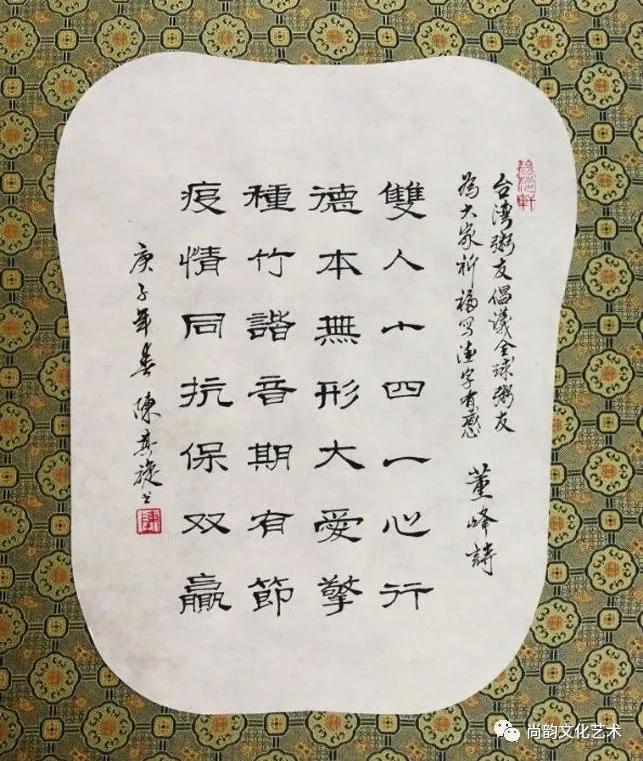 台湾粥友倡议全球粥友
為大家祈福写德字有感 董峰詩
雙人十四一心行
德本無形大愛擎
種竹諧音期有節
疫情同抗保双贏
庚子年春 陳其旋书
尚韵文化艺术